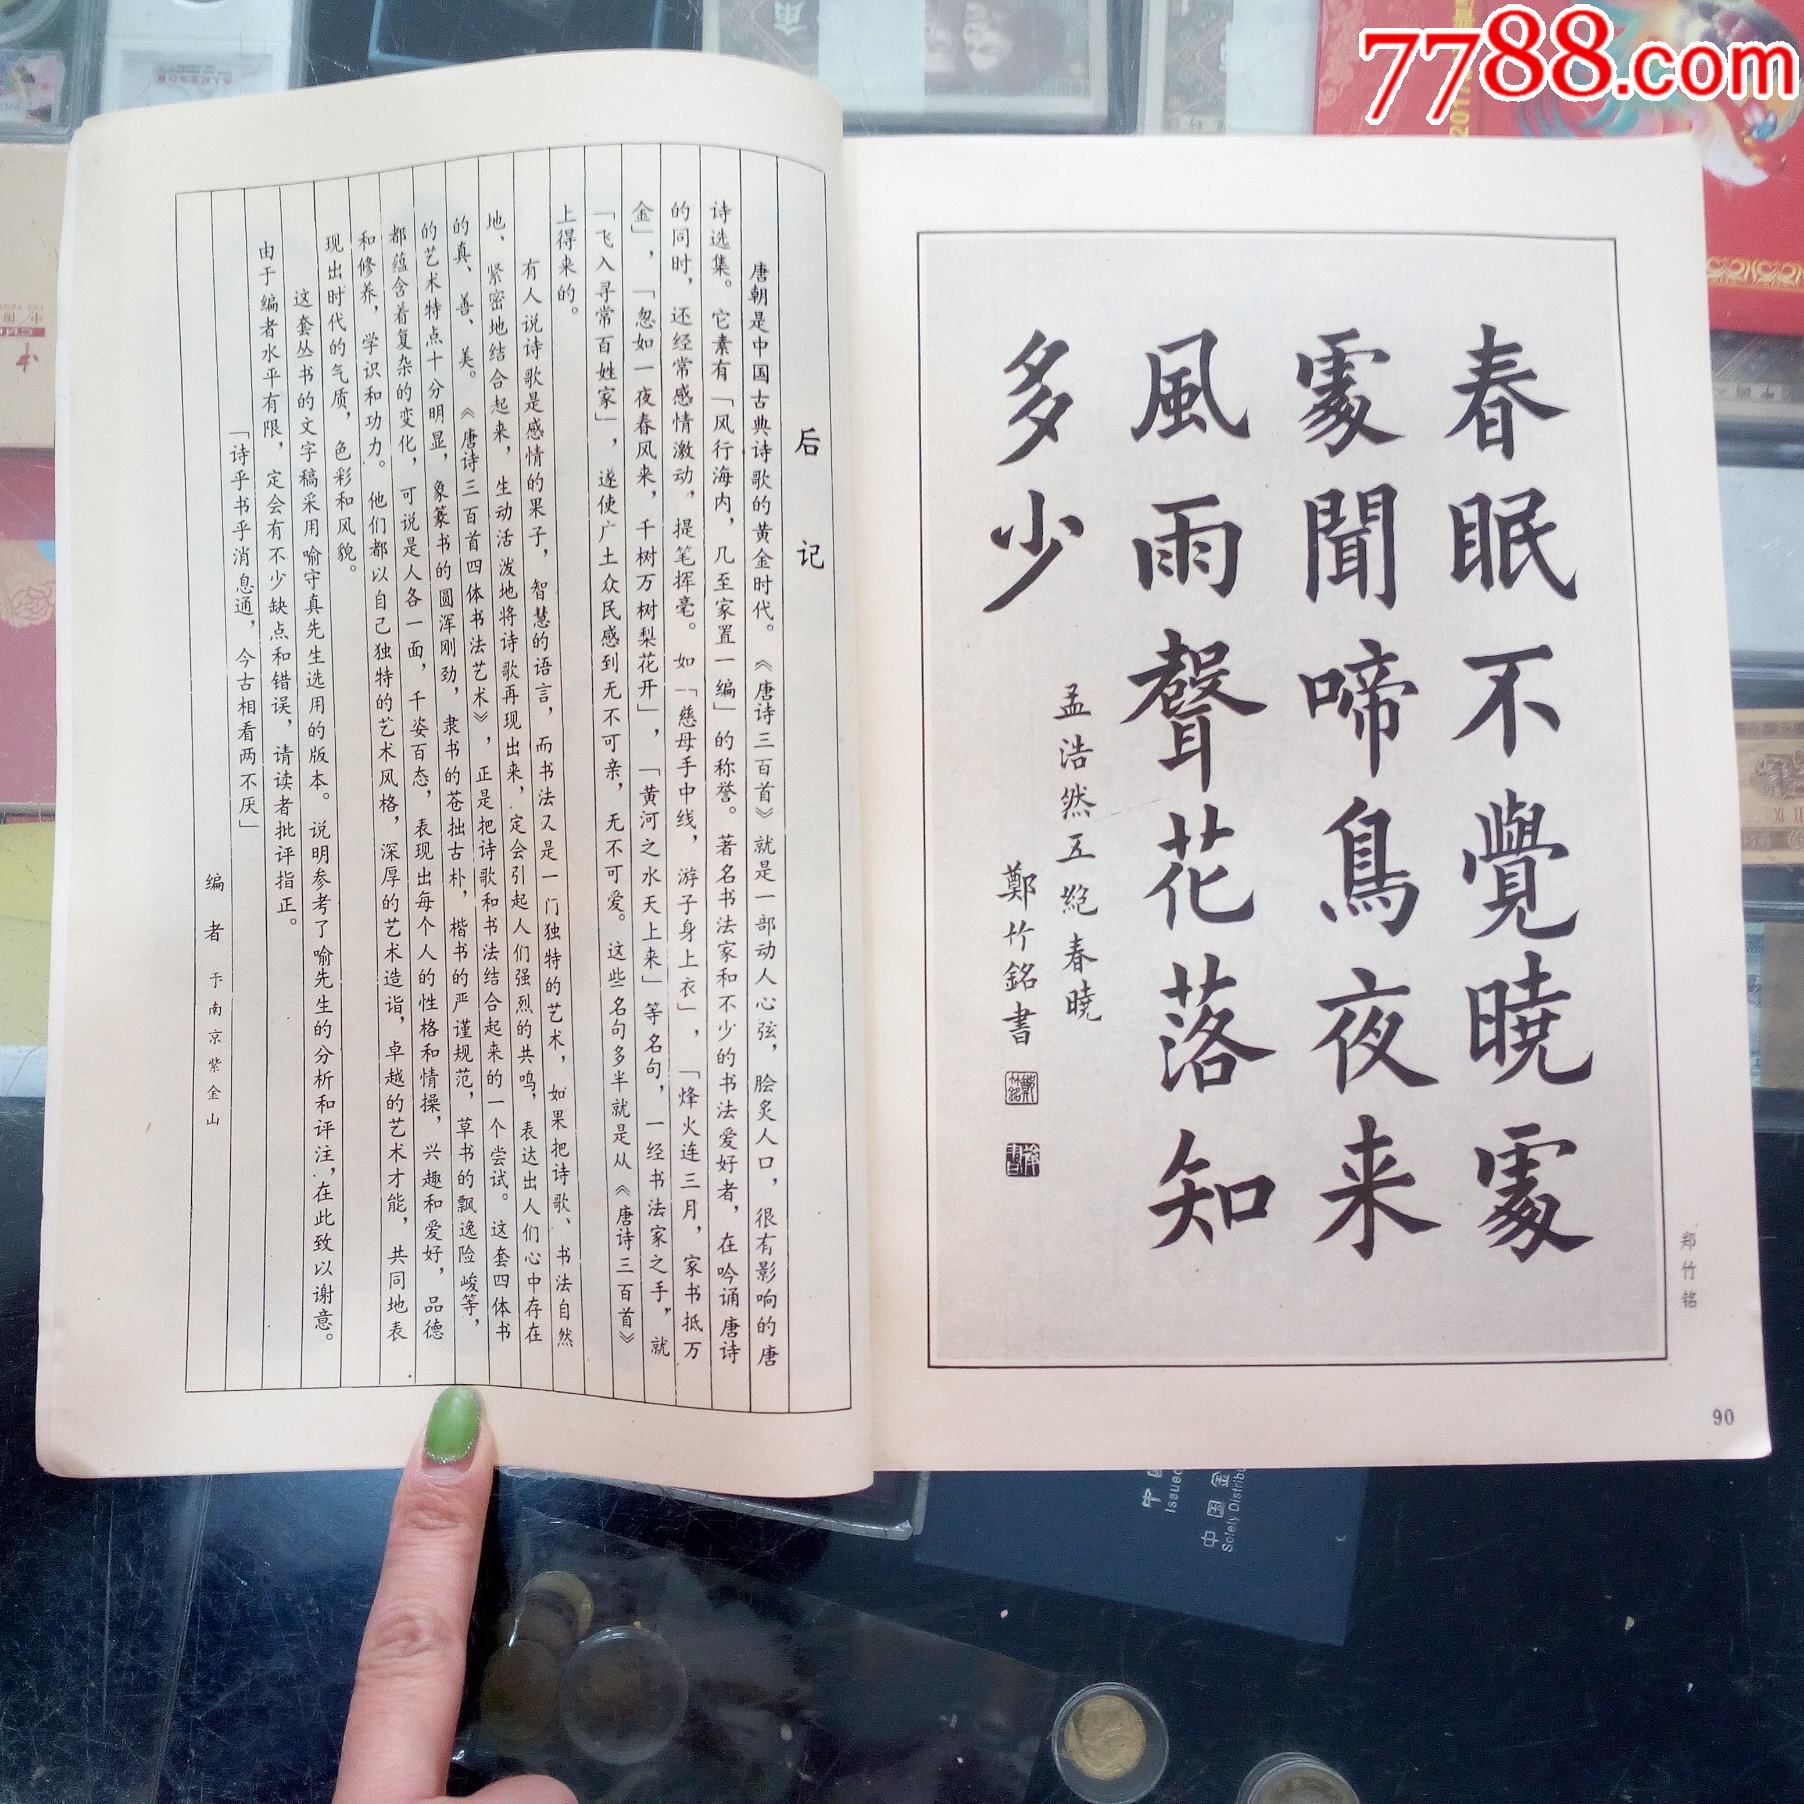 7788.com
春眠不覺曉處
處聞啼鳥夜来
風雨聲花落知
多少
孟浩然五絕春曉
鄭竹銘書
郑竹铭
90
后记
唐朝是中国古典诗歌的黄金时代。《唐诗三百首》就是一部动人心弦,脍炙人口,很有影响的唐
诗选集。它素有「风行海内,几至家置一编」的称誉。著名书法家和不少的书法爱好者,在吟诵唐诗
的同时,还经常感情激动,提笔挥毫。如「慈母手中线,游子身上衣」,「烽火连三月,家书抵万
金」,「忽如一夜春风来,千树万树梨花开」,「黄河之水天上来」等名句,一经书法家之手,就
「飞入寻常百姓家」,遂使广土众民感到无不可亲,无不可爱。这些名句多半就是从《唐诗三百首》
上得来的。
有人说诗歌是感情的果子,智慧的语言,而书法又是一门独特的艺术,如果把诗歌、书法自然
地、紧密地结合起来,生动活泼地将诗歌再现出来,定会引起人们强烈的共鸣,表达出人们心中存在
的真、善、美。《唐诗三百首四体书法艺术》,正是把诗歌和书法结合起来的一个尝试。这套四体书
的艺术特点十分明显,象篆书的圆浑刚劲,隶书的苍拙古朴,楷书的严谨规范,草书的飘逸险峻等,
都蕴含着复杂的变化,可说是人各一面,千姿百态,表现出每个人的性格和情操,兴趣和爱好,品德
和修养,学识和功力。他们都以自己独特的艺术风格,深厚的艺术造诣,卓越的艺术才能,共同地表
现出时代的气质,色彩和风貌。
这套丛书的文字稿采用喻守真先生选用的版本。说明参考了喻先生的分析和评注,在此致以谢意。
由于编者水平有限,定会有不少缺点和错误,请读者批评指正。
「诗乎书乎消息通,今古相看两不厌」
编者 于南京紫金山
中国金
Solely Distribu
Issued